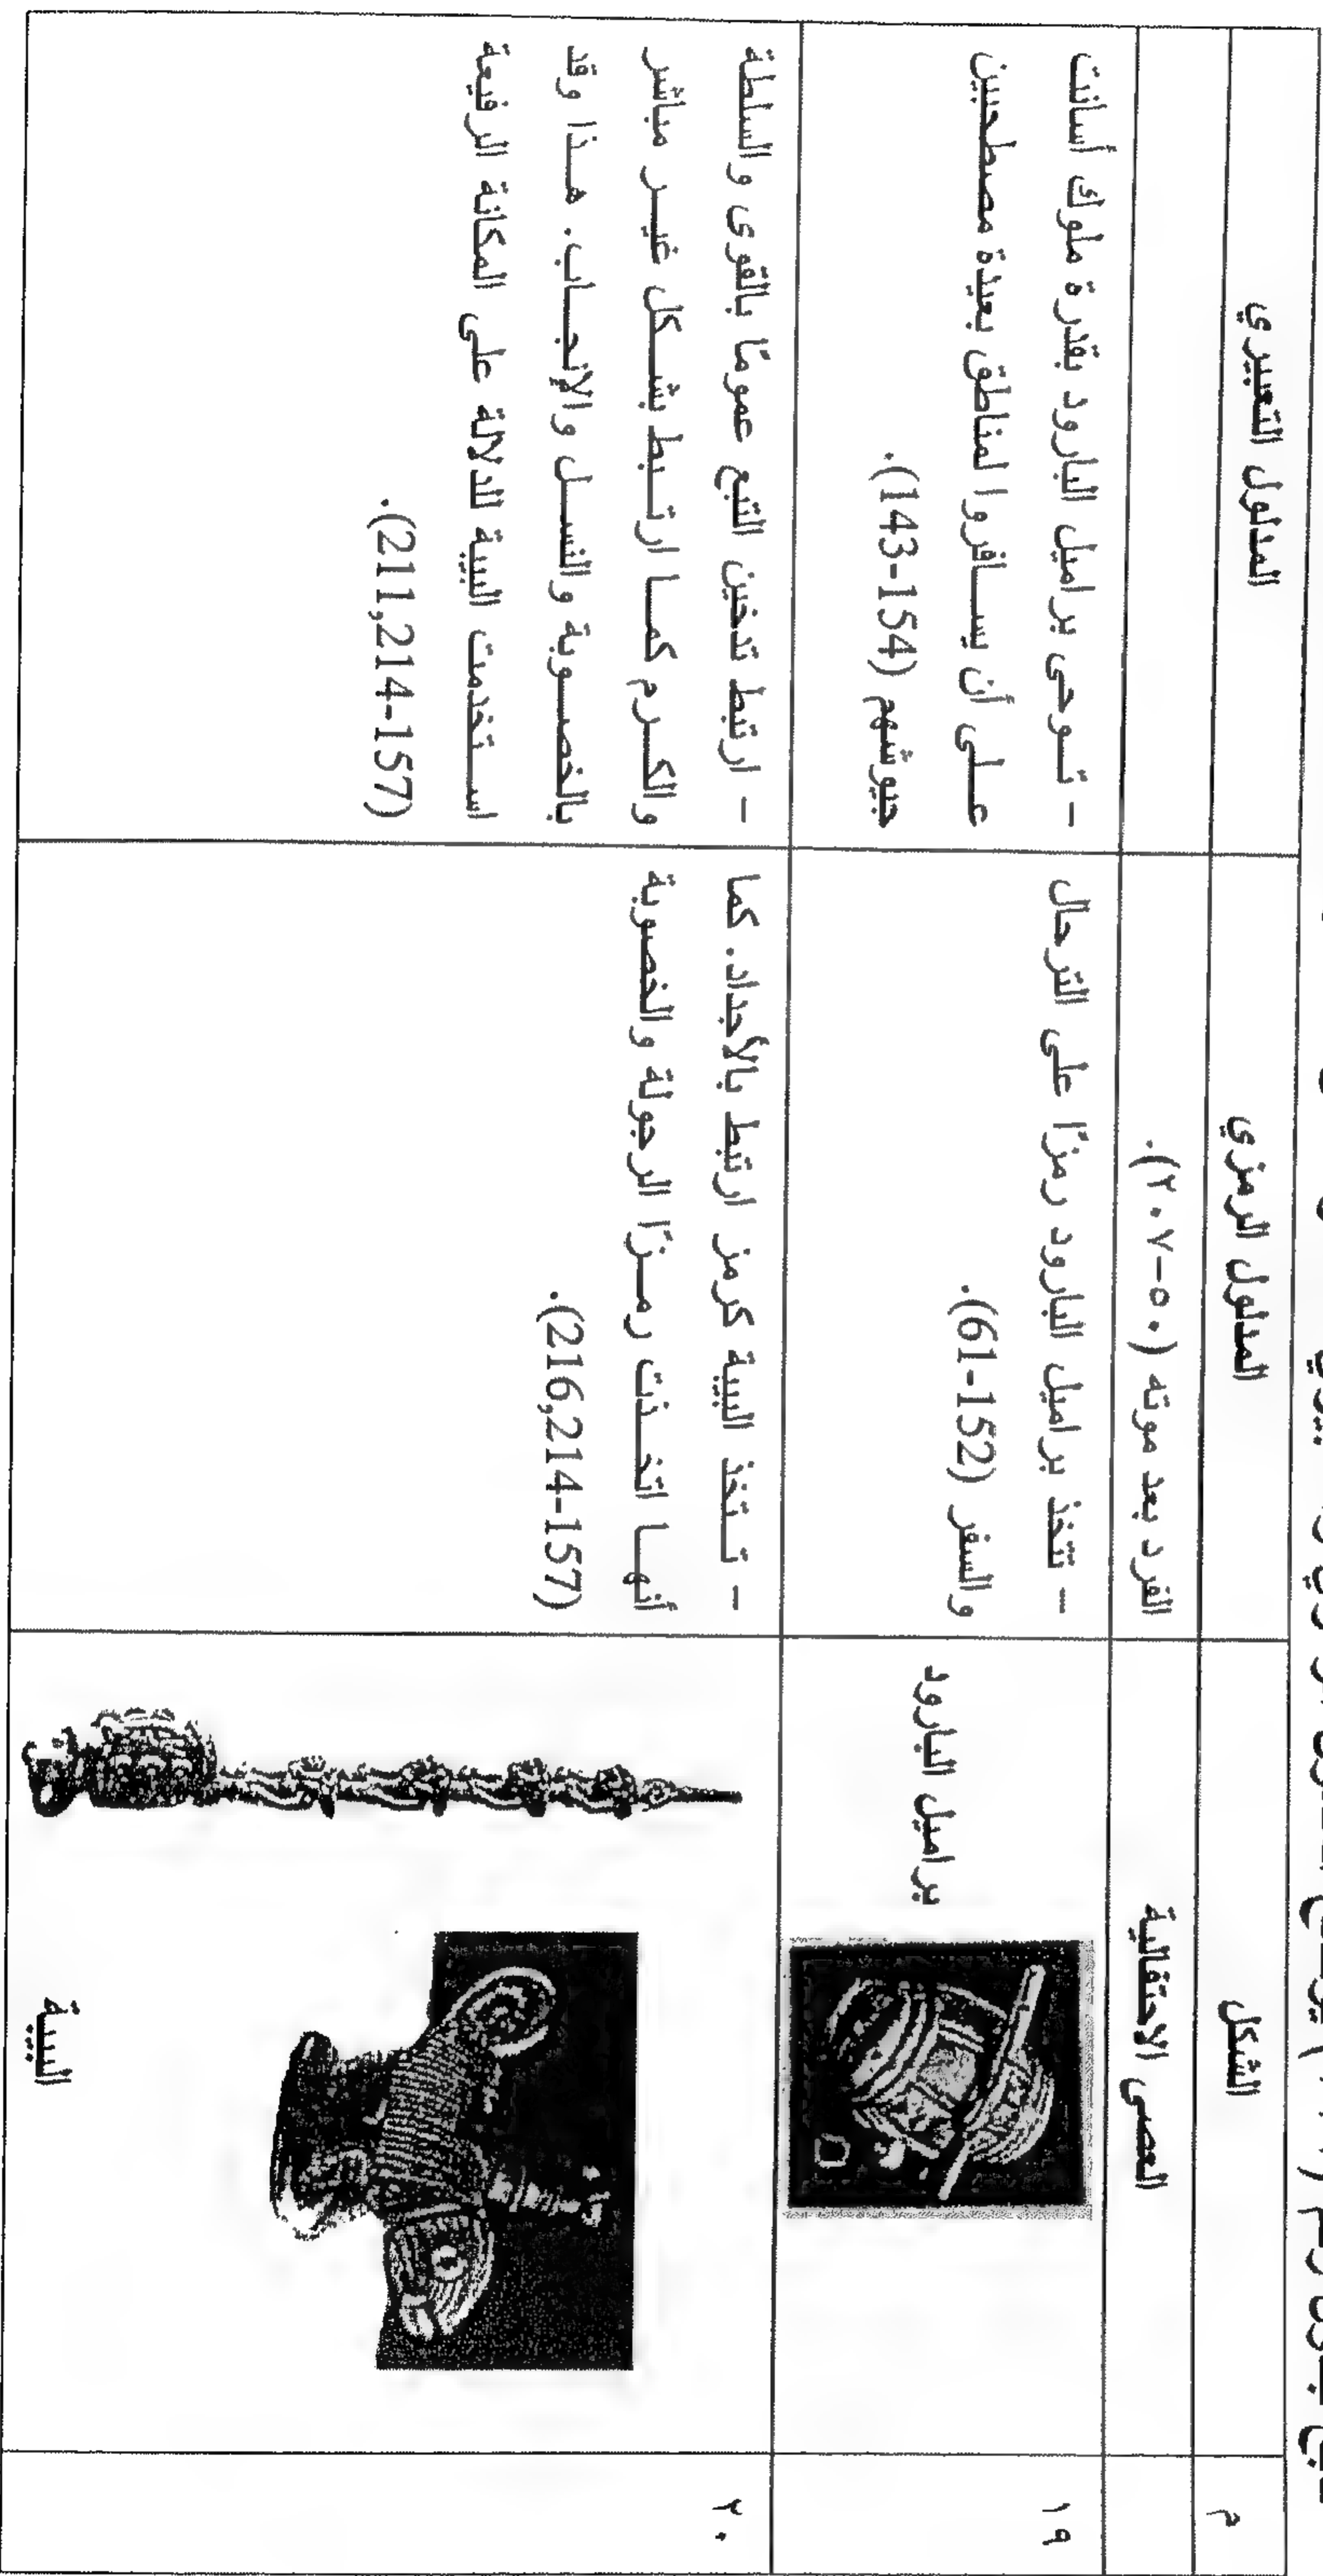 م
الشكل
المدلول الرمزي
المدلول التعبيري
العصى الاحتفالية
الفرد بعد موته (٥٠-٢٠٧).
١٩
براميل البارود
– تتخذ براميل البارود رمزًا على الترحال
والسفر (152-61).
– تـوحى براميل البارود بقدرة ملوك أسانت
عـلى أن يسـافروا لمناطق بعيدة مصطحبين
جيوشهم (154-143).
٢٠
البيبة
– تـتخذ البيبة كرمز ارتبط بالأجداد. كما
أنهـا اتخـذت رمـزًا الرجولة والخصوبة
(216,214-157).
– ارتبط تدخين التبع عمومًا بالقوى والسلطة
والكـرم كمـا ارتـبط بشـكل غيـر مباشر
بالخصـوبة والنسـل والإنجـاب. هـذا وقد
اسـتخدمت البيبة للدلالة على المكانة الرفيعة
(211,214-157).